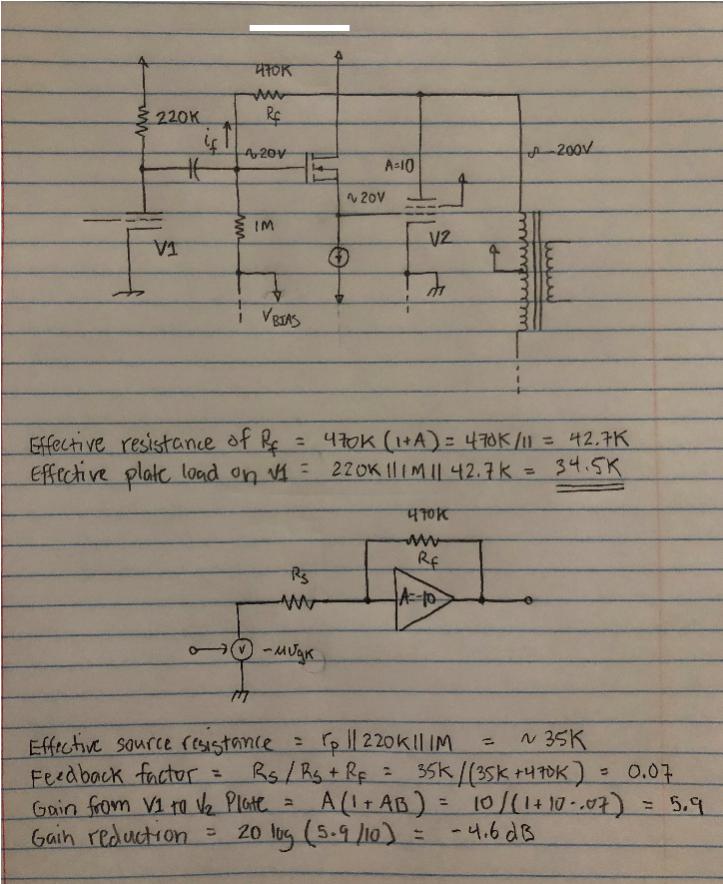 470K
Rf
220K
if
~20V
A=10
~200V
~20V
V1
1M
V2
VBIAS
Effective resistance of Rf = 470K (1+A) = 470K/11 = 42.7K
Effective plate load on V1 = 220K || 1M || 42.7K = 34.5K
470K
Rf
Rs
A=-10
V
-μVgK
Effective source resistance = rp || 220K || 1M = ~35K
Feedback factor = Rs / Rs + Rf = 35K / (35K + 470K) = 0.07
Gain from V1 to V2 Plate = A(1 + AB) = 10/(1+10·.07) = 5.9
Gain reduction = 20 log (5.9/10) = -4.6 dB